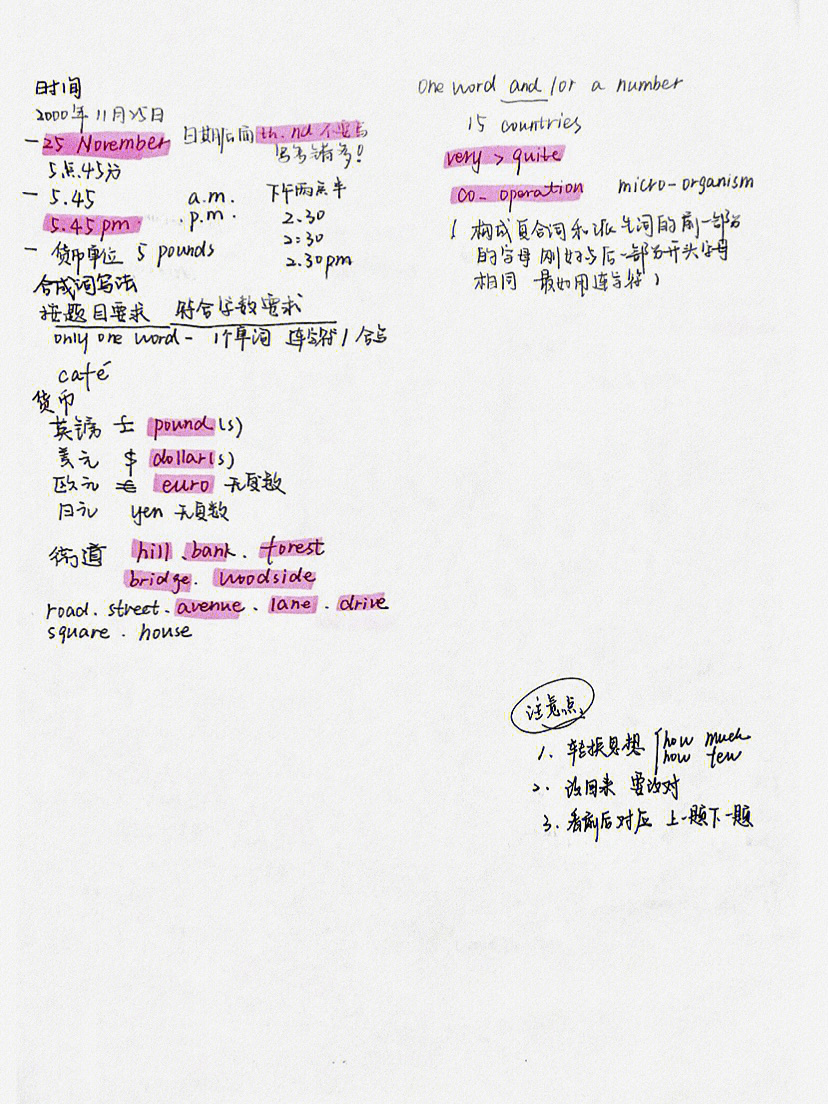 时间
2000年11月25日
- 25 November 日期后面 th. nd 不要写
写多错多!
5点45分
- 5.45 a.m. 下午两点半
5.45 pm p.m. 2.30
2:30
- 货币单位 5 pounds 2.30pm
合成词写法
按题目要求 符合字数要求
only one word - 1个单词 连字符 / 合写
café
货币
英镑 £ pound(s)
美元 $ dollar(s)
欧元 € euro 无复数
日元 yen 无复数
街道 hill . bank . forest
bridge. woodside
road. street. avenue . lane . drive
square . house
One word and/or a number
15 countries
very > quite
co-operation micro-organism
( 构成复合词和派生词的前一部分
的字母刚好与后一部分开头字母
相同 最好用连字符 )
注意点
1. 转换思想 how much
how few
2. 读回来 要读对
3. 看前后对应 上一题下一题